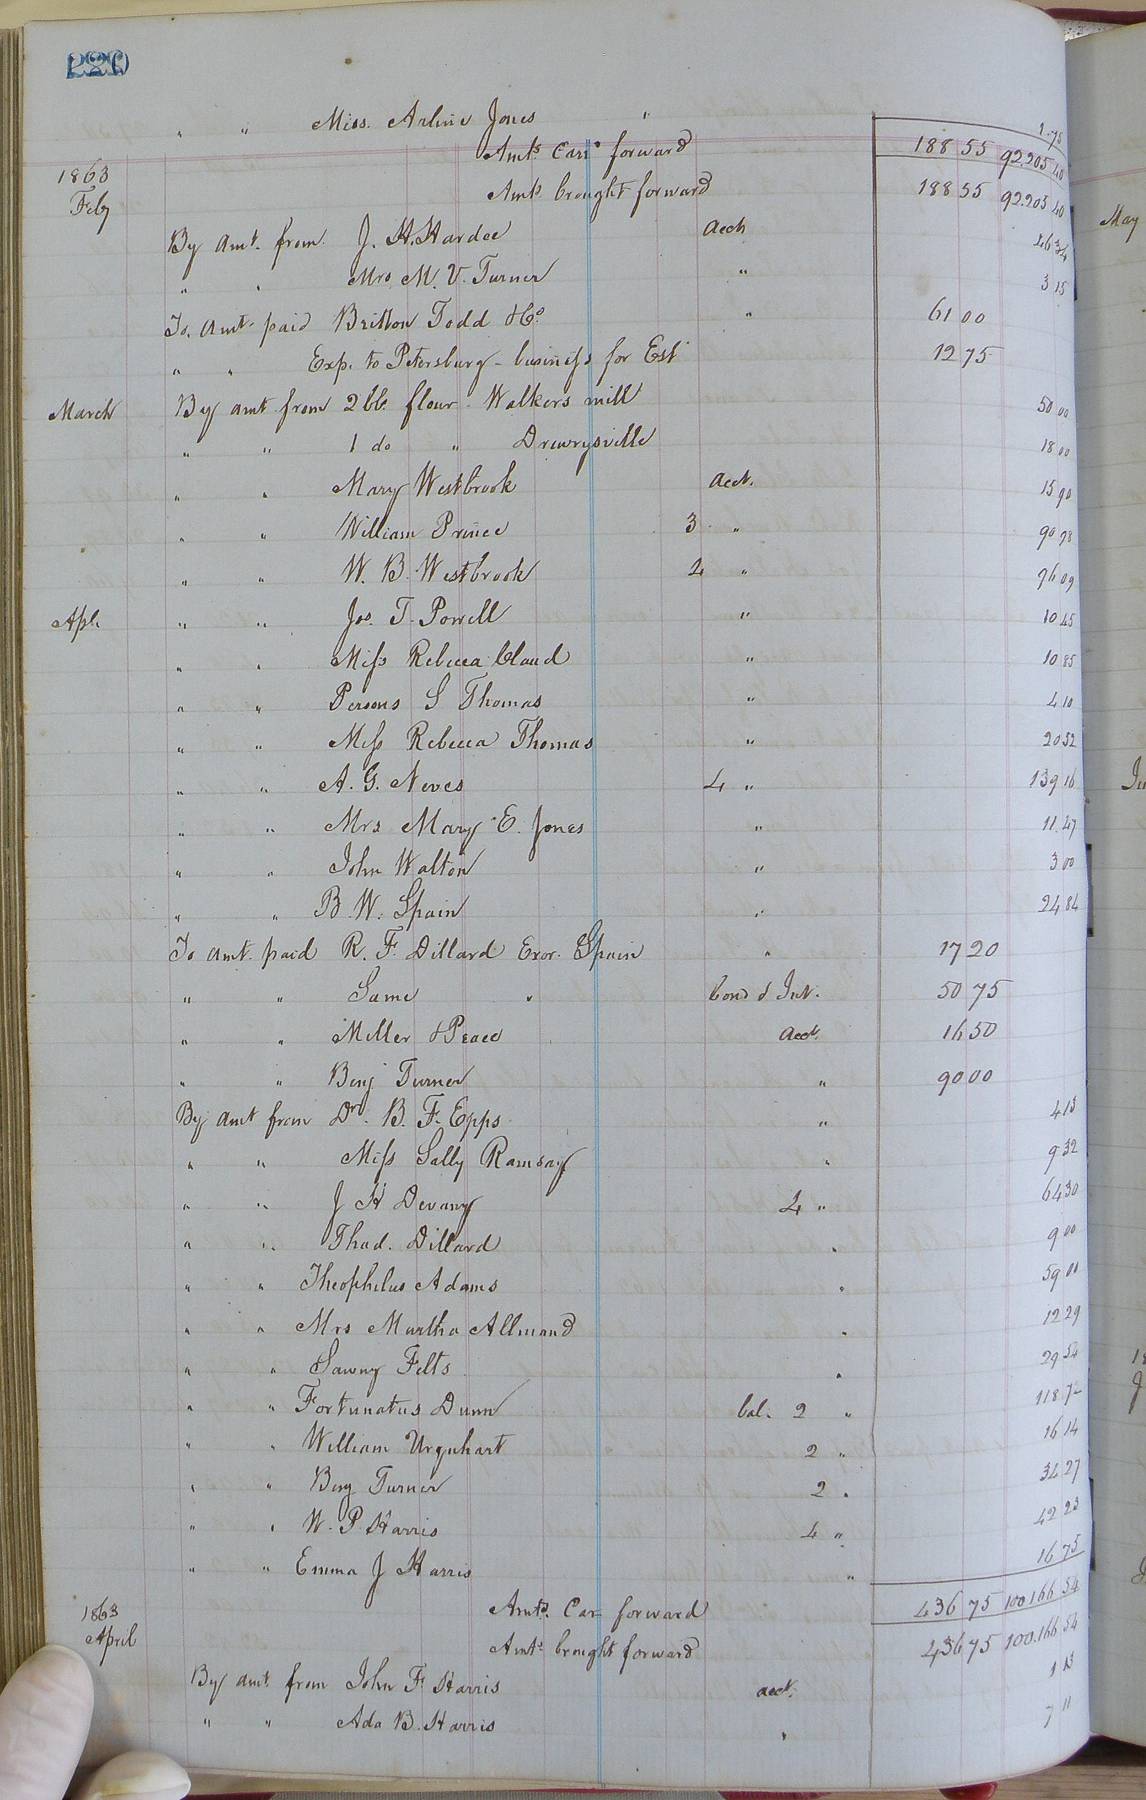 220
" " Miss. Arline Jones " 1.75
Amts Carr forward 188 55 92.205 40
1863
Feby Amts brought forward 188 55 92.205 40
By Amt. from J. H. Hardee Acct 46 34
" " Mrs M. V. Turner " 3 15
To. Amt. paid Britton Todd & Co " 61 00
" " Exp. to Petersburg - business for Est 12 75
March By amt from 2 bb. flour. Walkers mill 50 00
" " 1 do " Drewrysville 18 00
" " Mary Westbrook acct. 15 90
" " William Prince 3 " 90 98
" " W. B. Westbrook 2 " 96 09
Apl. " " Jos. T. Powell " 10 45
" " Miss Rebecca Claud " 10 85
" " Persons S Thomas " 4 10
" " Miss Rebecca Thomas " 20 52
" " A. G. Neves 4 " 139 16
" " Mrs Mary E. Jones " 11.47
" " John Walton " 3 00
" " B. W. Spain " 24 84
To amt. paid R. F. Dillard Exor. Spain " 17 20
" " Same " bond & Int. 50 75
" " Miller & Peace acct. 16 50
" " Benj Turner " 90 00
By amt from Dr. B. F. Epps " 4 13
" " Miss Sally Ramsay " 9 32
" " J H Devany 2 " 64 30
" " Thad. Dillard " 9 00
" " Theophilus Adams " 59 00
" " Mrs Martha Allmand " 12 29
" " Sawny Felts " 29 54
" " Fortunatus Dunn bal. 2 " 118
" " William Urquhart 2 " 16 14
" " Benj Turner 2 " 34 27
" " W. P Harris 4 " 42 23
" " Emma J Harris " 16 75
Amts. Car forward 436 75 100.166 54
1863
April Amts brought forward 436 75 100.166 54
By amt. from John F Harris acct. 1 13
" " Ada B. Harris " 7 11
May